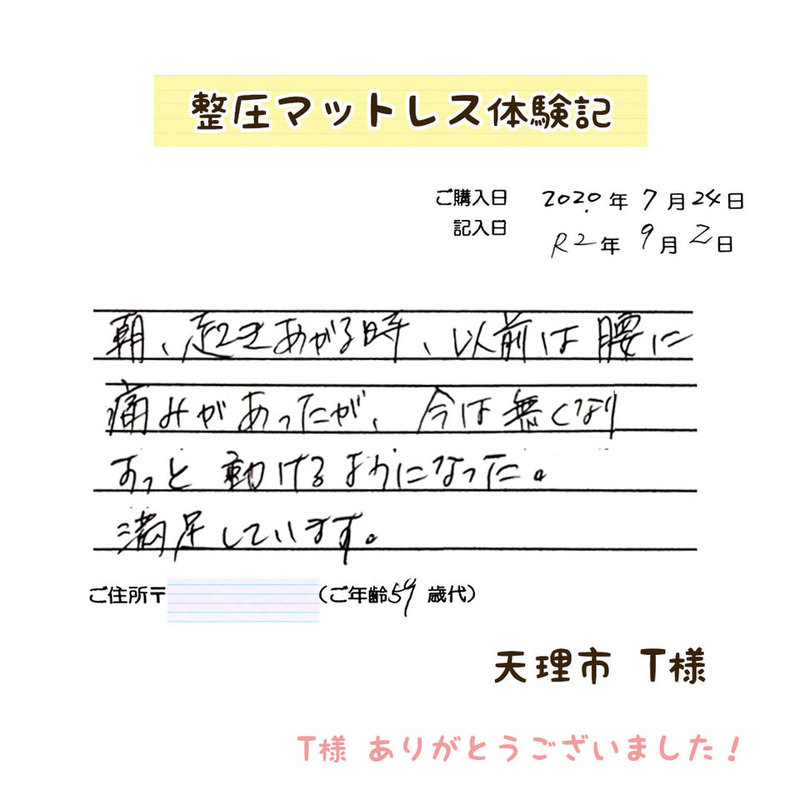 整圧マットレス体験記
ご購入日 2020年7月24日
記入日 R2年9月2日
朝、起きあがる時、以前は腰に
痛みがあったが、今は無くなり
すっと動けるようになった。
満足しています。
ご住所〒 (ご年齢59歳代)
天理市 T様
T様 ありがとうございました！